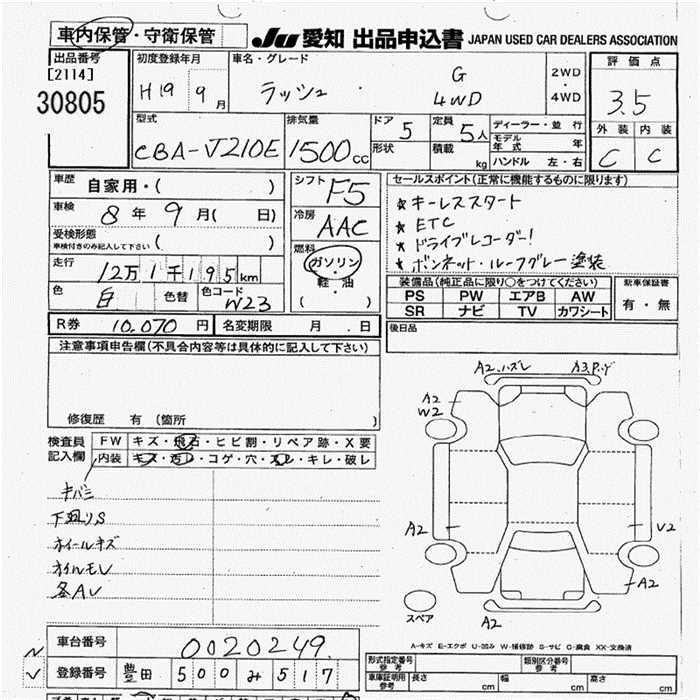 車内保管・守衛保管
JU 愛知 出品申込書 JAPAN USED CAR DEALERS ASSOCIATION
出品番号
[2114]
30805
初度登録年月
H19 9月
車名・グレード
ラッシュ G 4WD
2WD ・ 4WD
評価点
3.5
外装 内装
C C
型式
CBA-J210E
排気量
1500cc
ドア 5
形状
定員 5人
積載 kg
ディーラー・並行
モデル年式 年
ハンドル 左・右
車歴 自家用・( )
車検 8年9月( 日)
受検形態
車検付きのみ記入して下さい ( )
走行 12万1千195km
色 白 色替 色コード W23
シフト F5
冷房 AAC
燃料
ガソリン
・
軽・油
( )
セールスポイント(正常に機能するものに限ります)
★ キーレススタート
★ ETC
★ ドライブレコーダー!
★ ボンネット・ルーフグレー塗装
装備品(純正品に限り○をつけてください)
PS PW エアB AW
SR ナビ TV カワシート
新車保証書
有・無
R券 10,070円 名変期限 月 日
後日品
注意事項申告欄(不具合内容等は具体的に記入して下さい)
修復歴 有 (箇所 )
検査員記入欄
FW キズ・飛石・ヒビ割・リペア跡・X要
内装 キズ・汚レ・コゲ・穴・スレ・キレ・破レ
キバミ
下廻りS
ホイールキズ
オイルモレ
各AU
A2.ハズレ
A2
W2
A2
V2
A2
A2
スペア
A-キズ E-エクボ U-凹み W-補修跡 S-サビ C-腐食 XX-交換済
車台番号 0020249
登録番号 豊田 500 み 517
形式指定番号
参考
類別区分番号
参考
車庫証明用
参考
長さ cm 幅 cm 高さ cm